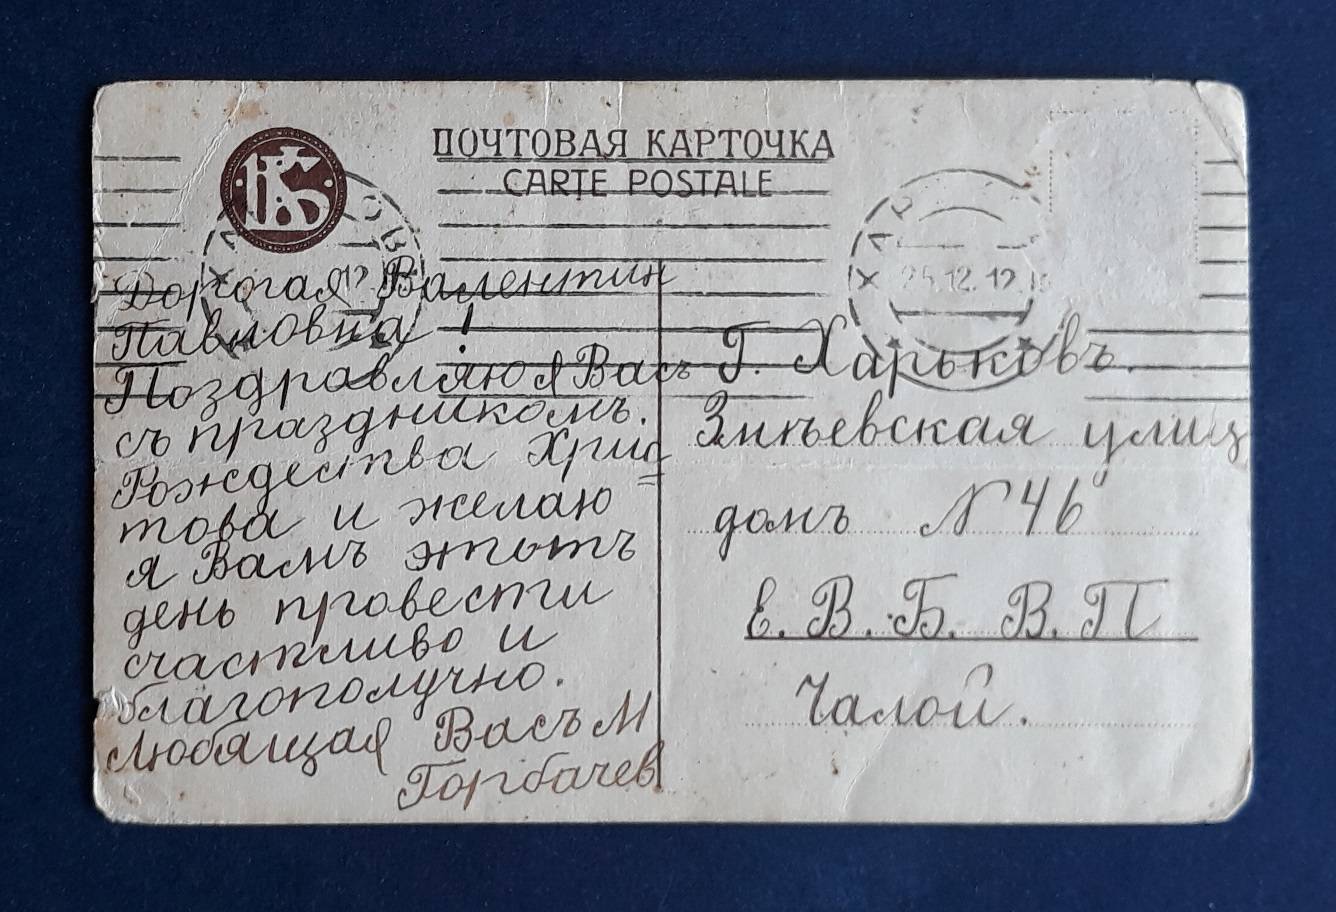 ПОЧТОВАЯ КАРТОЧКА
CARTE POSTALE
ХАР
24.12.12
ОВ
12
Дорогая Валентин
Павловна!
Поздравляю я Васъ
съ праздникомъ.
Рождества Хрис
това и желаю
я Вамъ этотъ
день провести
счастливо и
благополучно.
Любящая Васъ М
Горбачев
Г. Харьковъ.
Зміевская улиц
домъ № 46
Е. В. Б. В. П
Чалой.